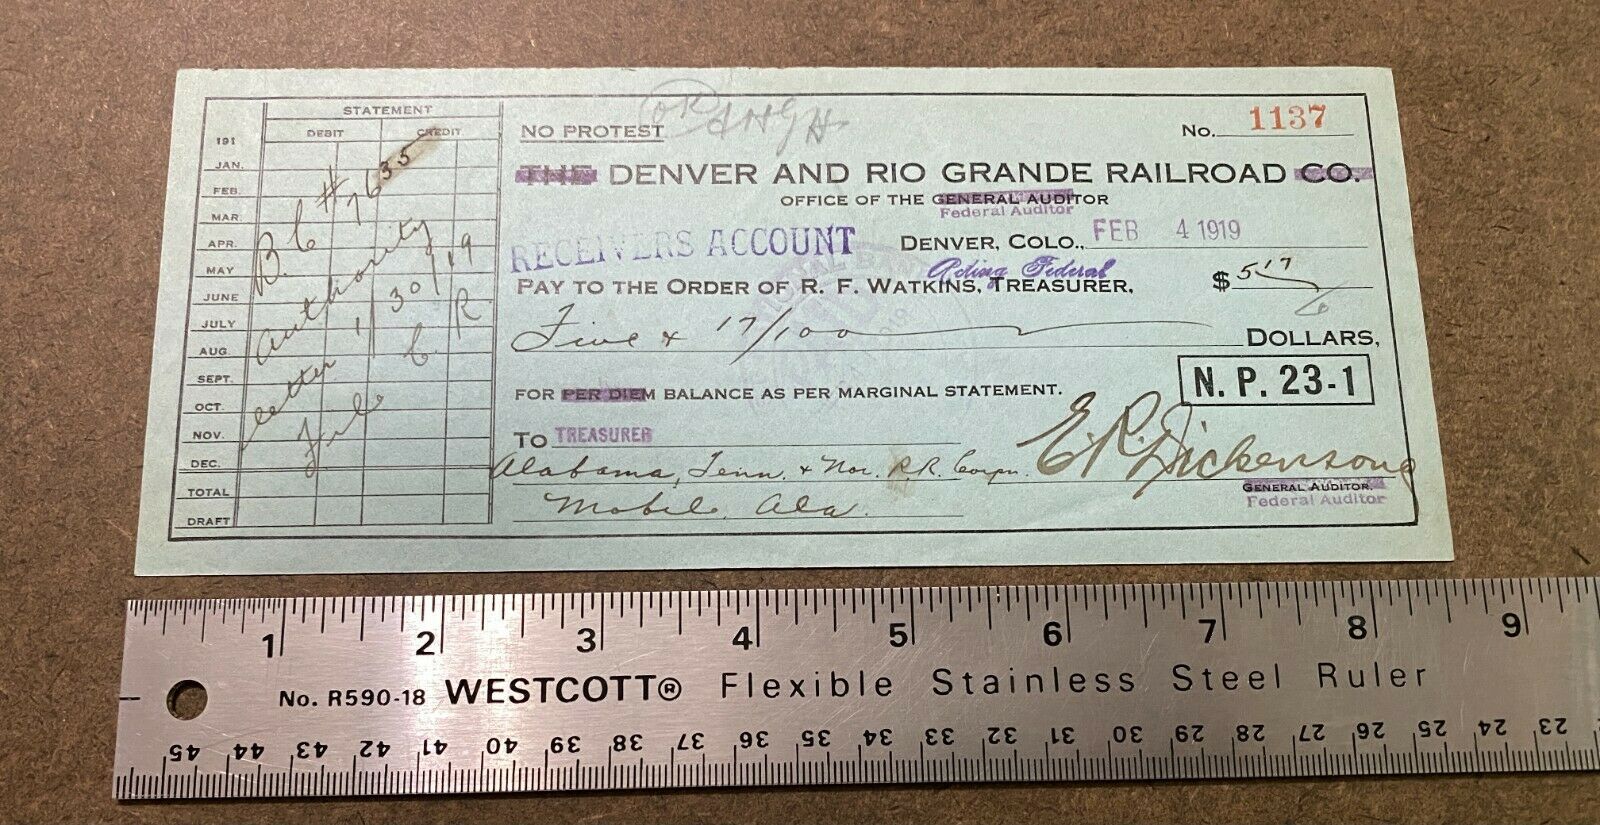 STATEMENT
191 DEBIT CREDIT
JAN.
FEB.
MAR.
APR.
MAY
JUNE
JULY
AUG.
SEPT.
OCT.
NOV.
DEC.
TOTAL
DRAFT
B.C. #7635
Authority
letter 1/30/19
File C. R
OK
NO PROTEST
No. 1137
THE DENVER AND RIO GRANDE RAILROAD CO.
OFFICE OF THE GENERAL AUDITOR
Federal Auditor
RECEIVERS ACCOUNT
DENVER, COLO., FEB 4 1919
Acting Federal
PAY TO THE ORDER OF R. F. WATKINS, TREASURER, $ 5 17
Five & 17/100 DOLLARS,
FOR PER DIEM BALANCE AS PER MARGINAL STATEMENT.
N. P. 23-1
TO TREASURER
Alabama, Tenn. & Nor. R.R. Corpn.
Mobile, Ala.
E.R. Dickenson
GENERAL AUDITOR.
Federal Auditor
1 2 3 4 5 6 7 8 9
No. R590-18 WESTCOTT® Flexible Stainless Steel Ruler
45 44 43 42 41 40 39 38 37 36 35 34 33 32 31 30 29 28 27 26 25 24 23